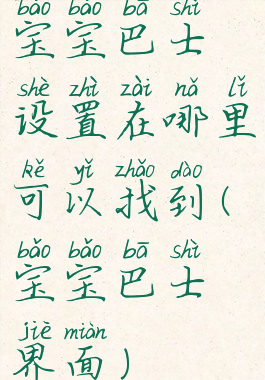 bǎo bǎo bā shì
宝宝巴士
shè zhì zài nǎ lǐ
设置在哪里
kě yǐ zhǎo dào
可以找到(
bǎo bǎo bā shì
宝宝巴士
jiè miàn
界面)